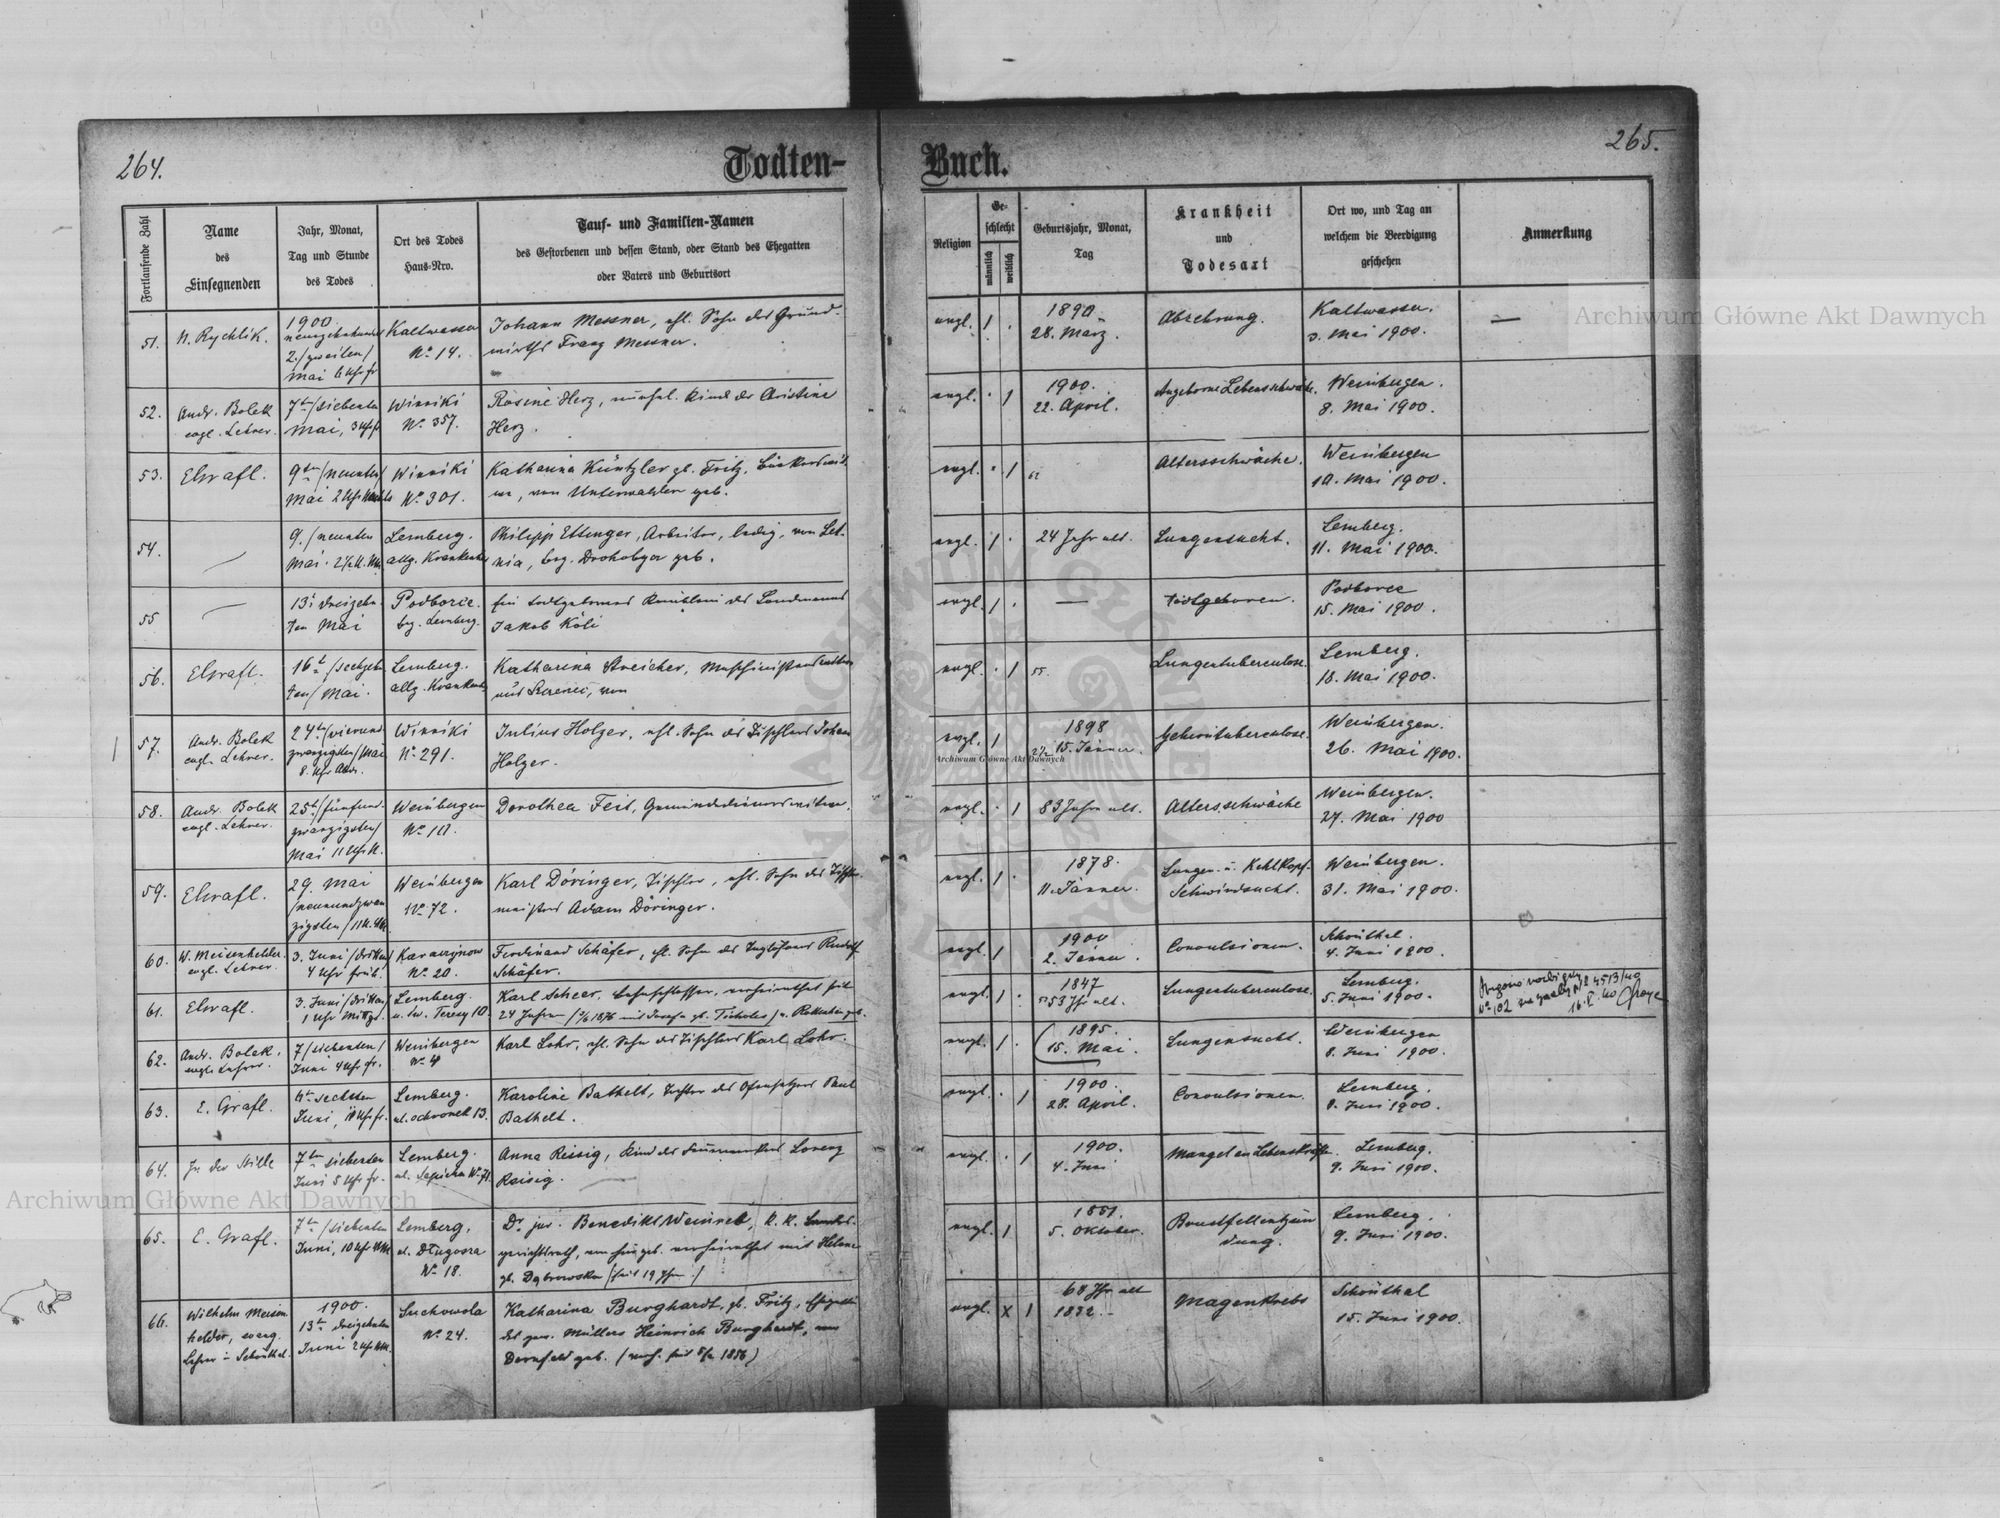 264.
Todten-
Buch.
265.
Fortlaufende Zahl
Name
des
Einsegnenden
Jahr, Monat,
Tag und Stunde
des Todes
Ort des Todes
Haus-Nro.
Tauf- und Familien-Namen
des Gestorbenen und dessen Stand, oder Stand des Ehegatten
oder Vaters und Geburtsort
Religion
Ge-
schlecht
männlich
weiblich
Geburtsjahr, Monat,
Tag
Krankheit
und
Todesart
Ort wo, und Tag an
welchem die Beerdigung
geschehen
Anmerkung
51.
N. Rychlik.
1900
2. /zweiten/
Mai 6 Uhr fr
Kaltwasser
No 14.
Johann Messner, ehl. Sohn des Grund-
wirths Franz Messner.
evgl. 1 .
1890
28. März.
Abzehrung.
Kaltwasser.
3. Mai 1900.
—
52.
Andr. Bolek
evgl. Lehrer.
7ten /siebenten
Mai, 3 Uhr fr
Winniki
No 357.
Rosine Herz, unehl. Kind der Cristine
Herz.
evgl. . 1
1900.
22. April.
Angeborne Lebensschwäche.
Weinbergen.
8. Mai 1900.
53.
Elsrafl.
9ten /neunten/
Mai 2 Uhr
Winniki
No 301.
Katharina Küntzler gb. Fritz,
von Unterwalden geb.
evgl. . 1
Altersschwäche.
Weinbergen
10. Mai 1900.
54.
—
9. /neunten
Mai.
Lemberg.
allg. Krankenhs
Philipp Ettinger, Arbeiter, ledig, von Let-
nia, bzg. Drohobycz geb.
evgl. 1 .
24 Jahr alt.
Lungensucht.
Lemberg.
11. Mai 1900.
55
—
13. dreizehn
ten Mai
Podborce.
bzg. Lemberg.
Ein todtgebornes Knäblein des Landmanns
Jakob Köli
evgl. 1 .
—
Todtgeboren.
Podborce
15. Mai 1900.
56.
Elsrafl.
16t /sechzehn
ten/ Mai.
Lemberg.
allg. Krankenhs
Katharina Streicher,
aus von
evgl. . 1
55.
Lungentuberculose.
Lemberg.
18. Mai 1900.
57.
Andr. Bolek
evgl. Lehrer.
24ten /vierund
zwanzigsten/ Mai
8. Uhr Abds.
Winniki
No 291.
Julius Holzer, ehl. Sohn des Tischlers Johann
Holzer.
evgl. 1
1898
15. Jänner.
Gehirntuberculose.
Weinbergen.
26. Mai 1900.
58.
Andr. Bolek
evgl. Lehrer.
25t /fünfund-
zwanzigsten/
Mai 11 Uhr
Weinbergen
No
Dorothea Feit, Gemeindedienerswitwe.
evgl. . 1
83 Jahre alt.
Altersschwäche
Weinbergen.
27. Mai 1900
59.
Elsrafl.
29. Mai
/neunundzwan
zigsten/
Weinbergen
No 72.
Karl Döringer, Tischler, ehl. Sohn des Tischler-
meisters Adam Döringer.
evgl. 1 .
1878.
11. Jänner.
Lungen- u. Kehlkopf-
Schwindsucht.
Weinbergen.
31. Mai 1900.
60.
W. Meisenhelder.
evgl. Lehrer.
3. Juni /dritten/
4 Uhr früh.
No 20.
Ferdinand Schäfer, ehl. Sohn des Rudolf
Schäfer.
evgl. 1
1900
2. Jänner
Convulsionen.
Schönthal.
4. Juni 1900.
61.
Elsrafl.
3. Juni /dritten/
1 Uhr Mittgs.
Lemberg.
u. św. Teresy 10
Karl Scheer, verheirathet seit
24 Jahren
evgl. 1 .
1847
53 Jhr alt.
Lungentuberculose.
Lemberg.
5. Juni 1900.
62.
Andr. Bolek.
evgl. Lehrer.
7 /siebenten/
Juni 4 Uhr fr.
Weinbergen
No 4
Karl Lohr, ehl. Sohn des Tischlers Karl Lohr.
evgl. 1 .
1895.
15. Mai.
Lungensucht.
Weinbergen
8. Juni 1900.
63.
E. Grafl.
sechsten
Juni, 10 Uhr fr.
Lemberg.
ul. ochronek 13.
Karoline Bathelt, Tochter des Ofensetzers Paul
Bathelt.
evgl. . 1
1900.
28. April.
Convulsionen.
Lemberg.
8. Juni 1900.
64.
In der Stille
7ten siebenten
Juni 5 Uhr fr.
Lemberg.
ul. Sapieha No 71.
Anna Reisig, Kind des Lorenz
Reisig.
evgl. . 1
1900.
4. Juni
Mangel an Lebenskräften.
Lemberg.
9. Juni 1900.
65.
E. Grafl.
7ten /siebenten
Juni, 10 Uhr
Lemberg.
ul. Długosza
No 18.
Dr. jur. Benedikt Weinreb, k. k. Landes-
gerichtsrath, verheirathet mit Helene
gb. Dąbrowska
evgl. 1
1851.
5. Oktober.
Brustfellentzün
dung.
Lemberg.
9. Juni 1900.
66.
Wilhelm Meisen
helder, evang.
Lehrer in Schönthal.
1900.
13ten dreizehnten
Juni 2 Uhr
Suchowola
No 24.
Katharina Burghardt, gb. Fritz, Ehegattin
des gew. Müllers Heinrich Burghardt, von
Dornfeld geb.
evgl. x 1
68 Jhr alt
1832.
Magenkrebs
Schönthal
15. Juni 1900.
Archiwum Główne Akt Dawnych
Archiwum Główne Akt Dawnych
Archiwum Główne Akt Dawnych